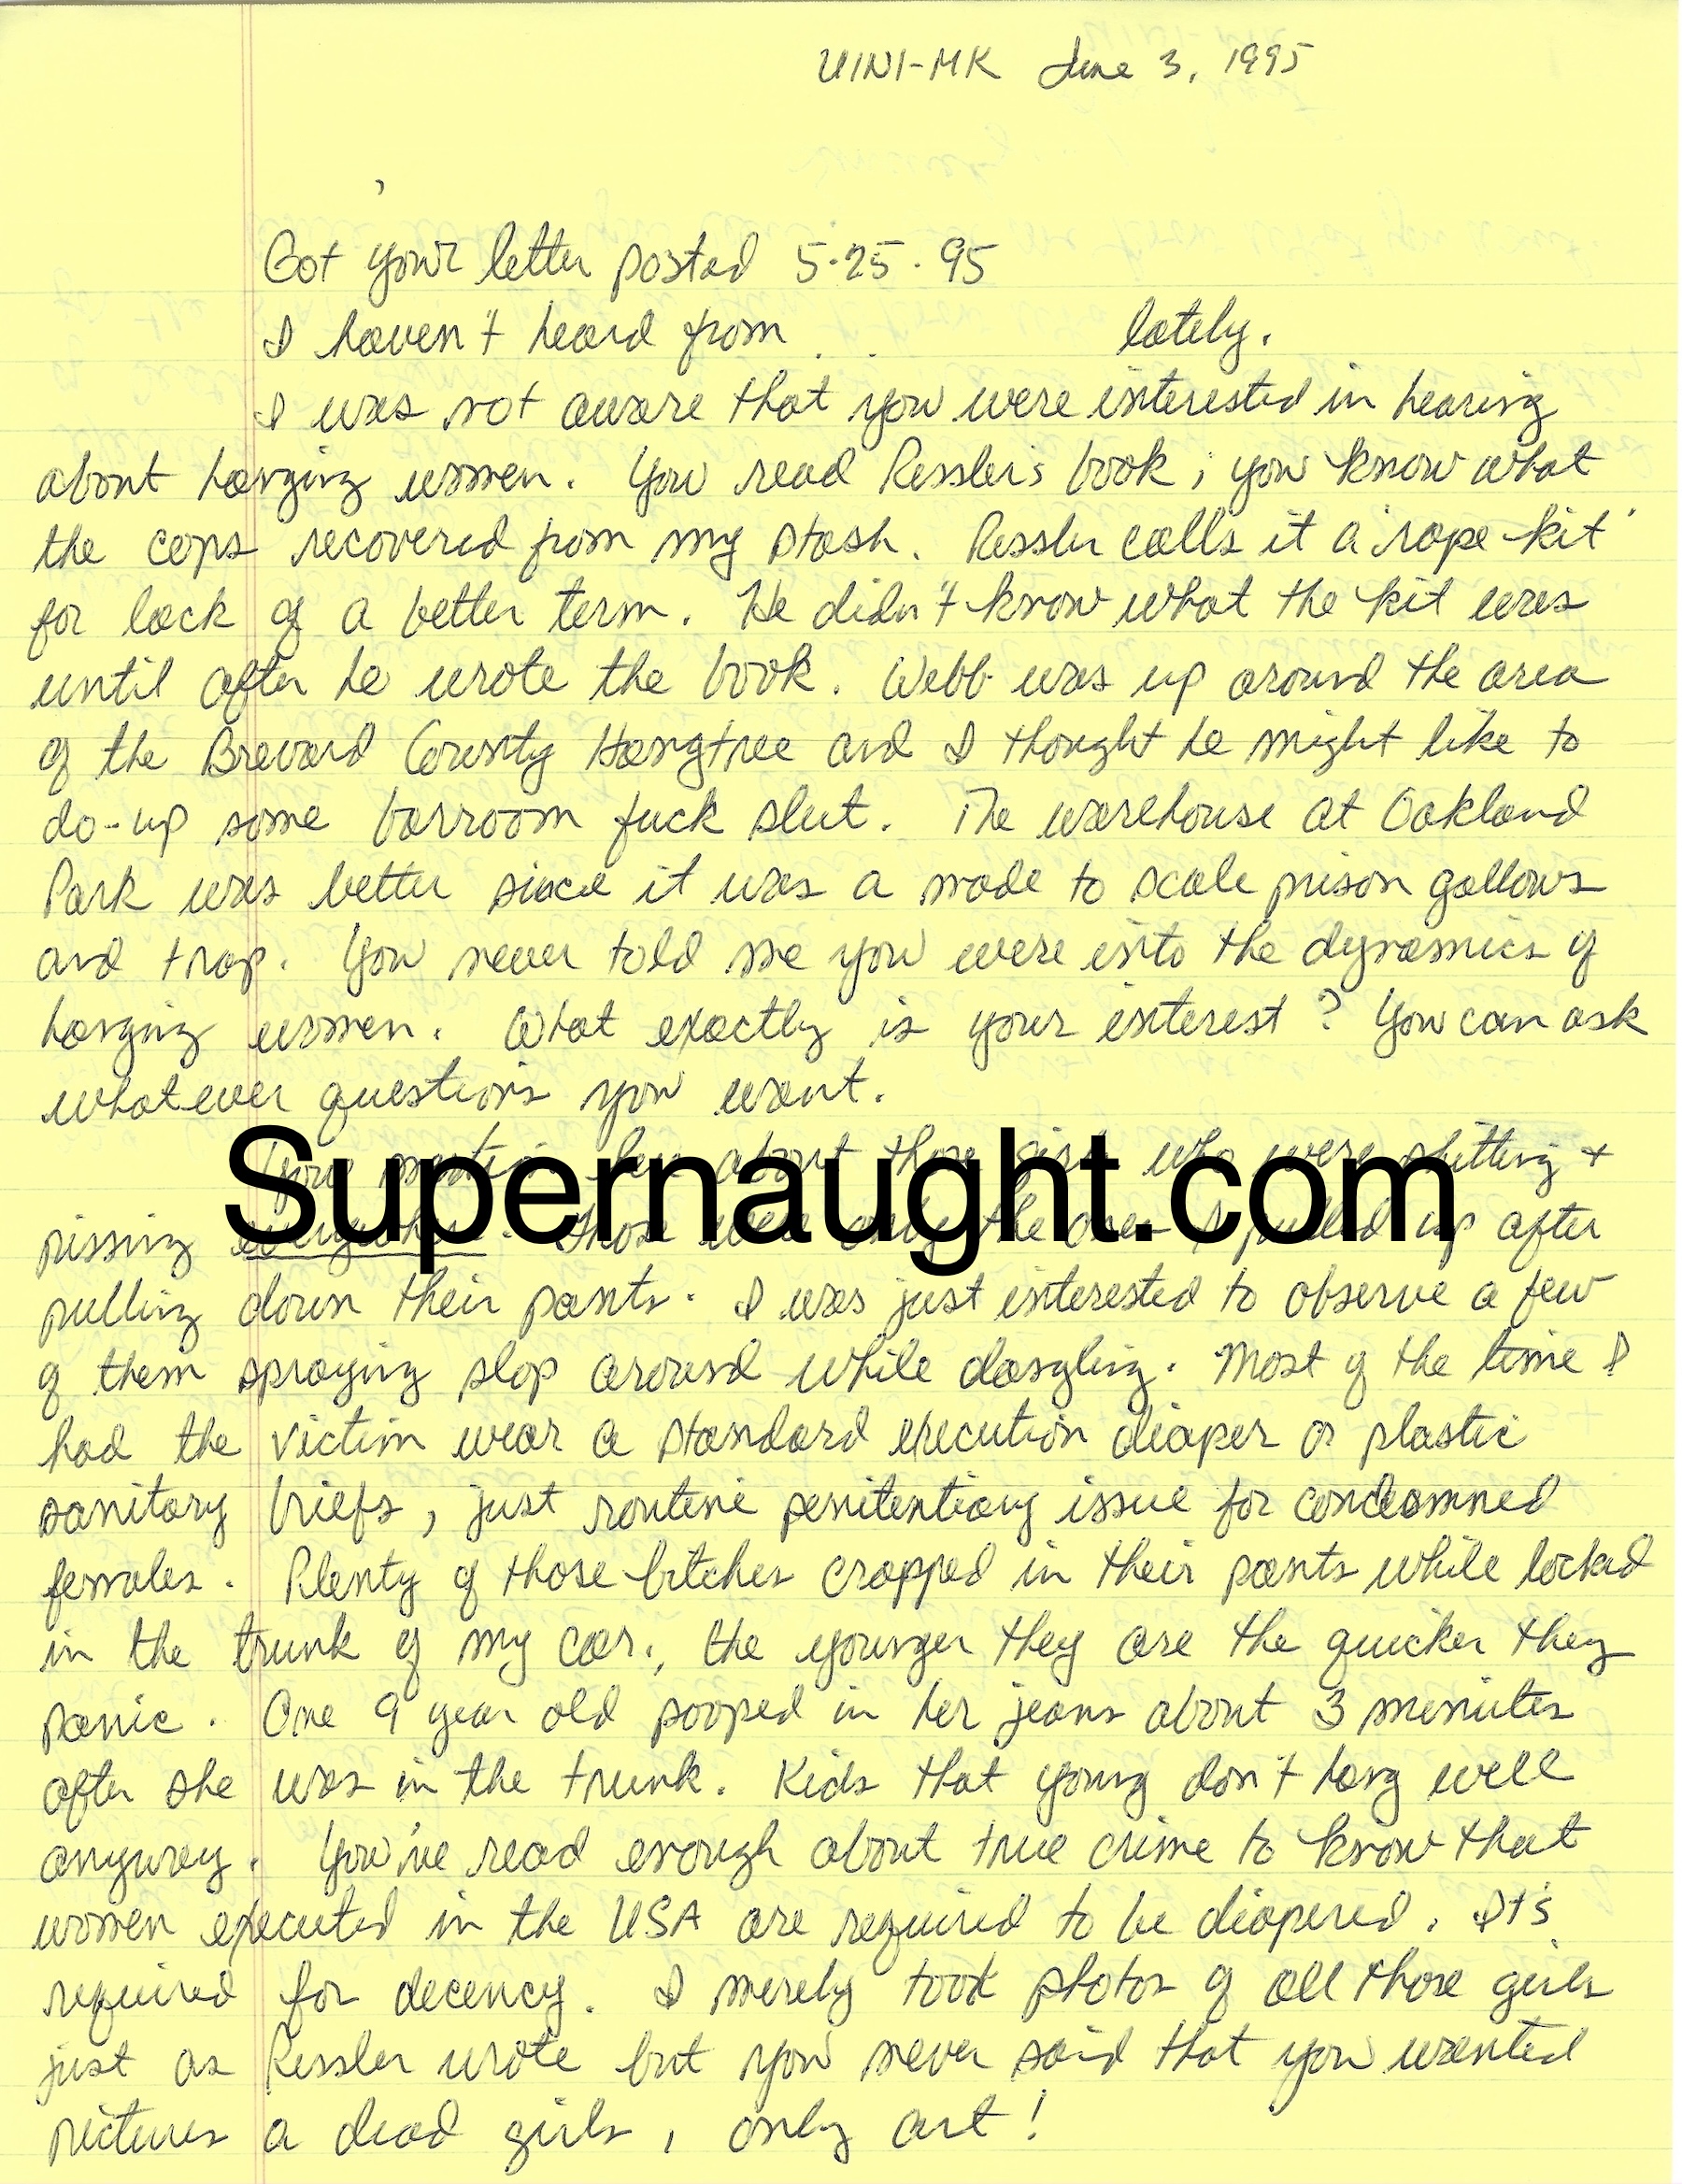 UINI-MK June 3, 1995
Got your letter posted 5·25·95
I haven't heard from lately.
I was not aware that you were interested in hearing
about hanging women. You read Ressler's book; you know what
the cops recovered from my stash. Ressler calls it a 'rape-kit'
for lack of a better term. He didn't know what the kit was
until after he wrote the book. Webb was up around the area
of the Brevard County Hangtree and I thought he might like to
do-up some barroom fuck slut. The warehouse at Oakland
Park was better since it was a made to scale prison gallows
and trap. You never told me you were into the dynamics of
hanging women. What exactly is your interest? You can ask
whatever questions you want.
about who were shitting +
Supernaught.com
pissing up after
pulling down their pants. I was just interested to observe a few
of them spraying slop around while dangling. Most of the time I
had the victim wear a standard execution diaper or plastic
sanitary briefs, just routine penitentiary issue for condemned
females. Plenty of those bitches crapped in their pants while locked
in the trunk of my car., the younger they are the quicker they
panic. One 9 year old pooped in her jeans about 3 minutes
after she was in the trunk. Kids that young don't hang well
anyway. You've read enough about true crime to know that
women executed in the USA are required to be diapered. It's
required for decency. I merely took photos of all those girls
just as Ressler wrote but you never said that you wanted
pictures a dead girls, only art!